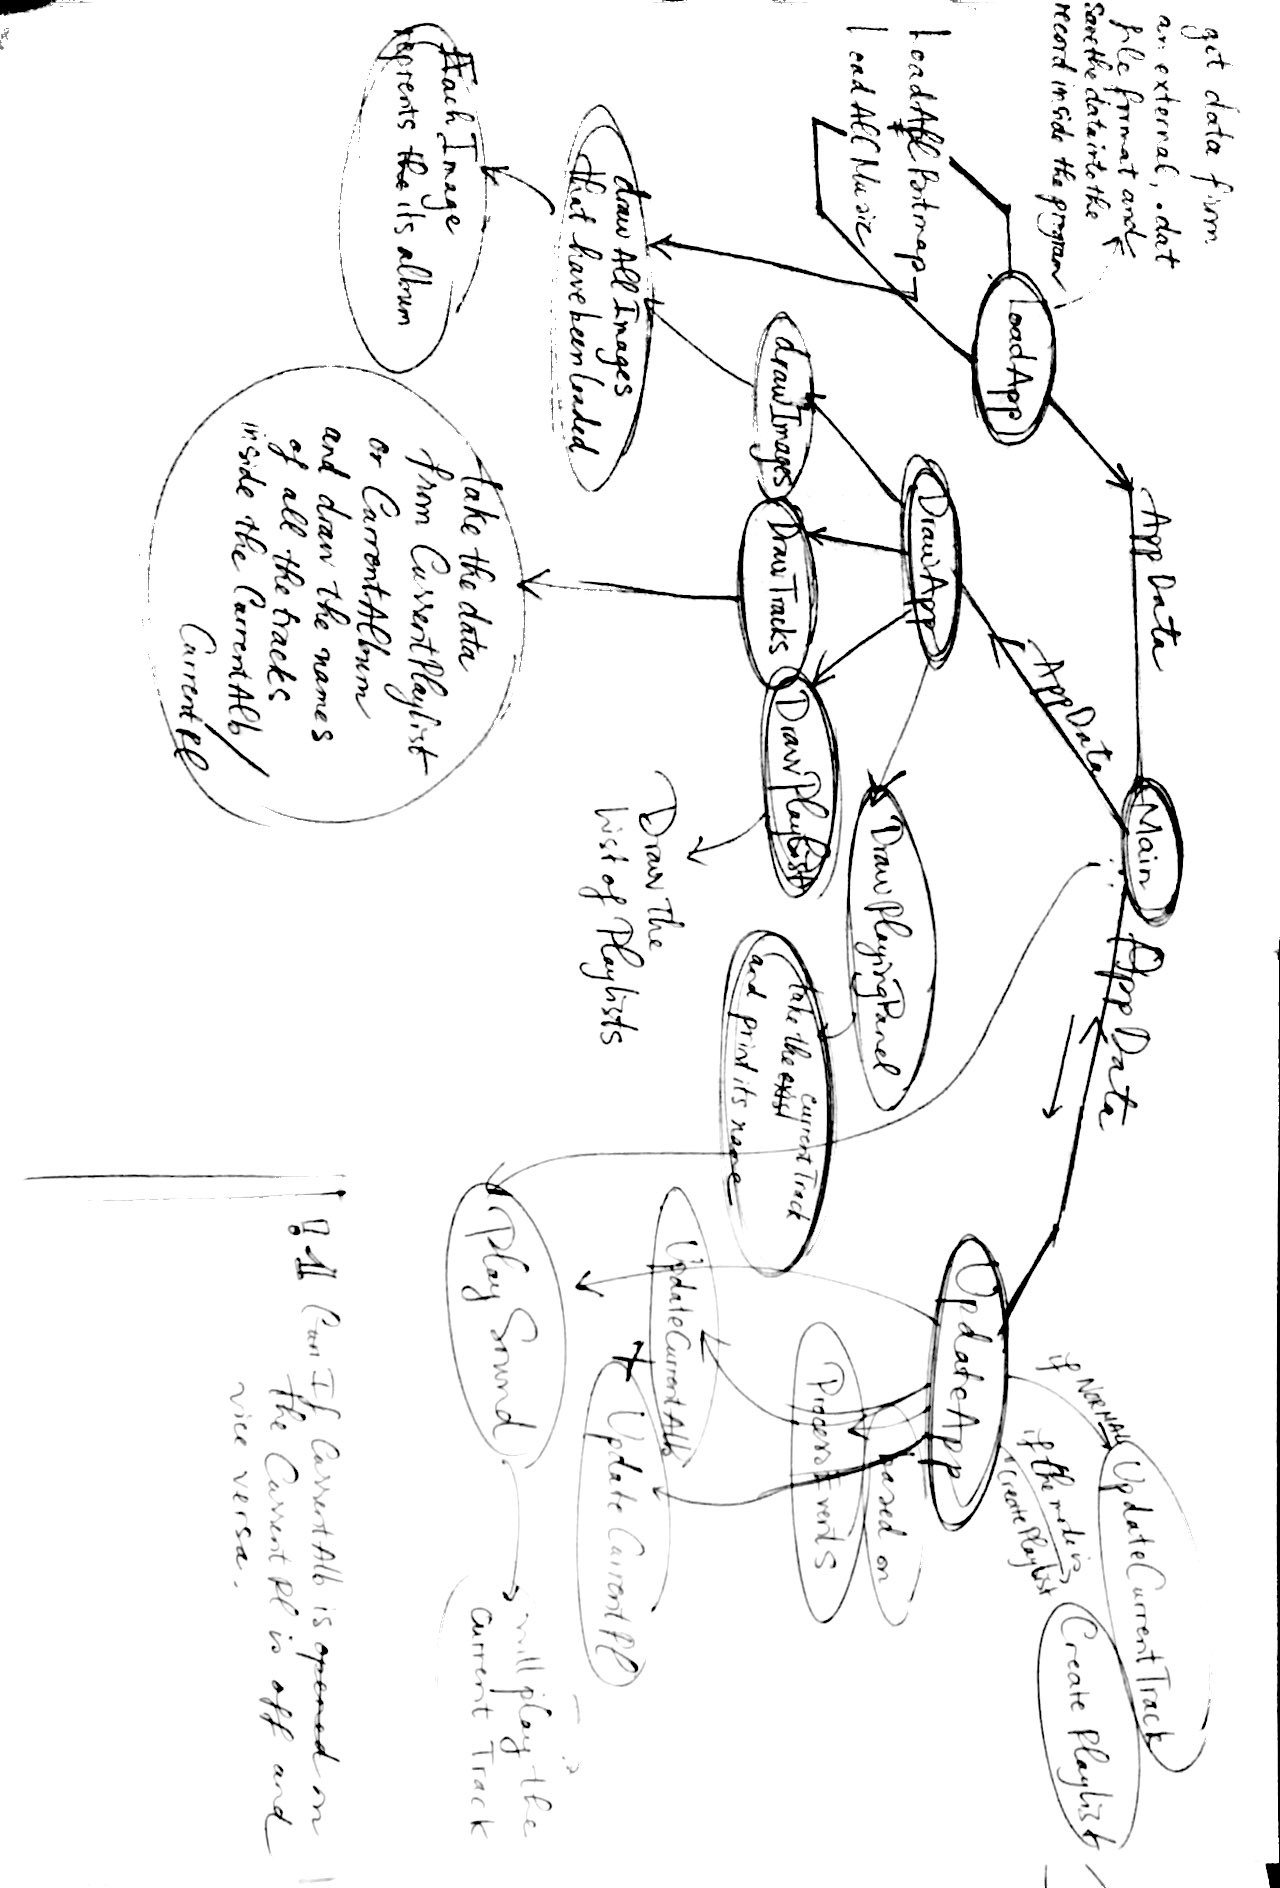 get data from
an external, .dat
file format and
save the data into the
record inside the program
LoadAllBitmap
LoadAllMusic
LoadApp
AppData
Main
AppData
AppData
DrawApp
drawImages
DrawTracks
DrawPlaylist
DrawPlayingPanel
draw All Images
that have been loaded
Each Image
reprents the its album
take the data
from CurrentPlaylist
or CurrentAlbum
and draw the names
of all the tracks
inside the CurrentAlb/
CurrentPl
Draw the
list of Playlists
take the current Track
and print its name
UpdateApp
if NORMAL
UpdateCurrentTrack
if the mode is
CreatePlaylist
Create Playlist
based on
ProcessEvents
UpdateCurrentAlb
Update CurrentPl
Play Sound
will play the
current Track
!.1 Can If CurrentAlb is opened on
the CurrentPl is off and
vice versa.